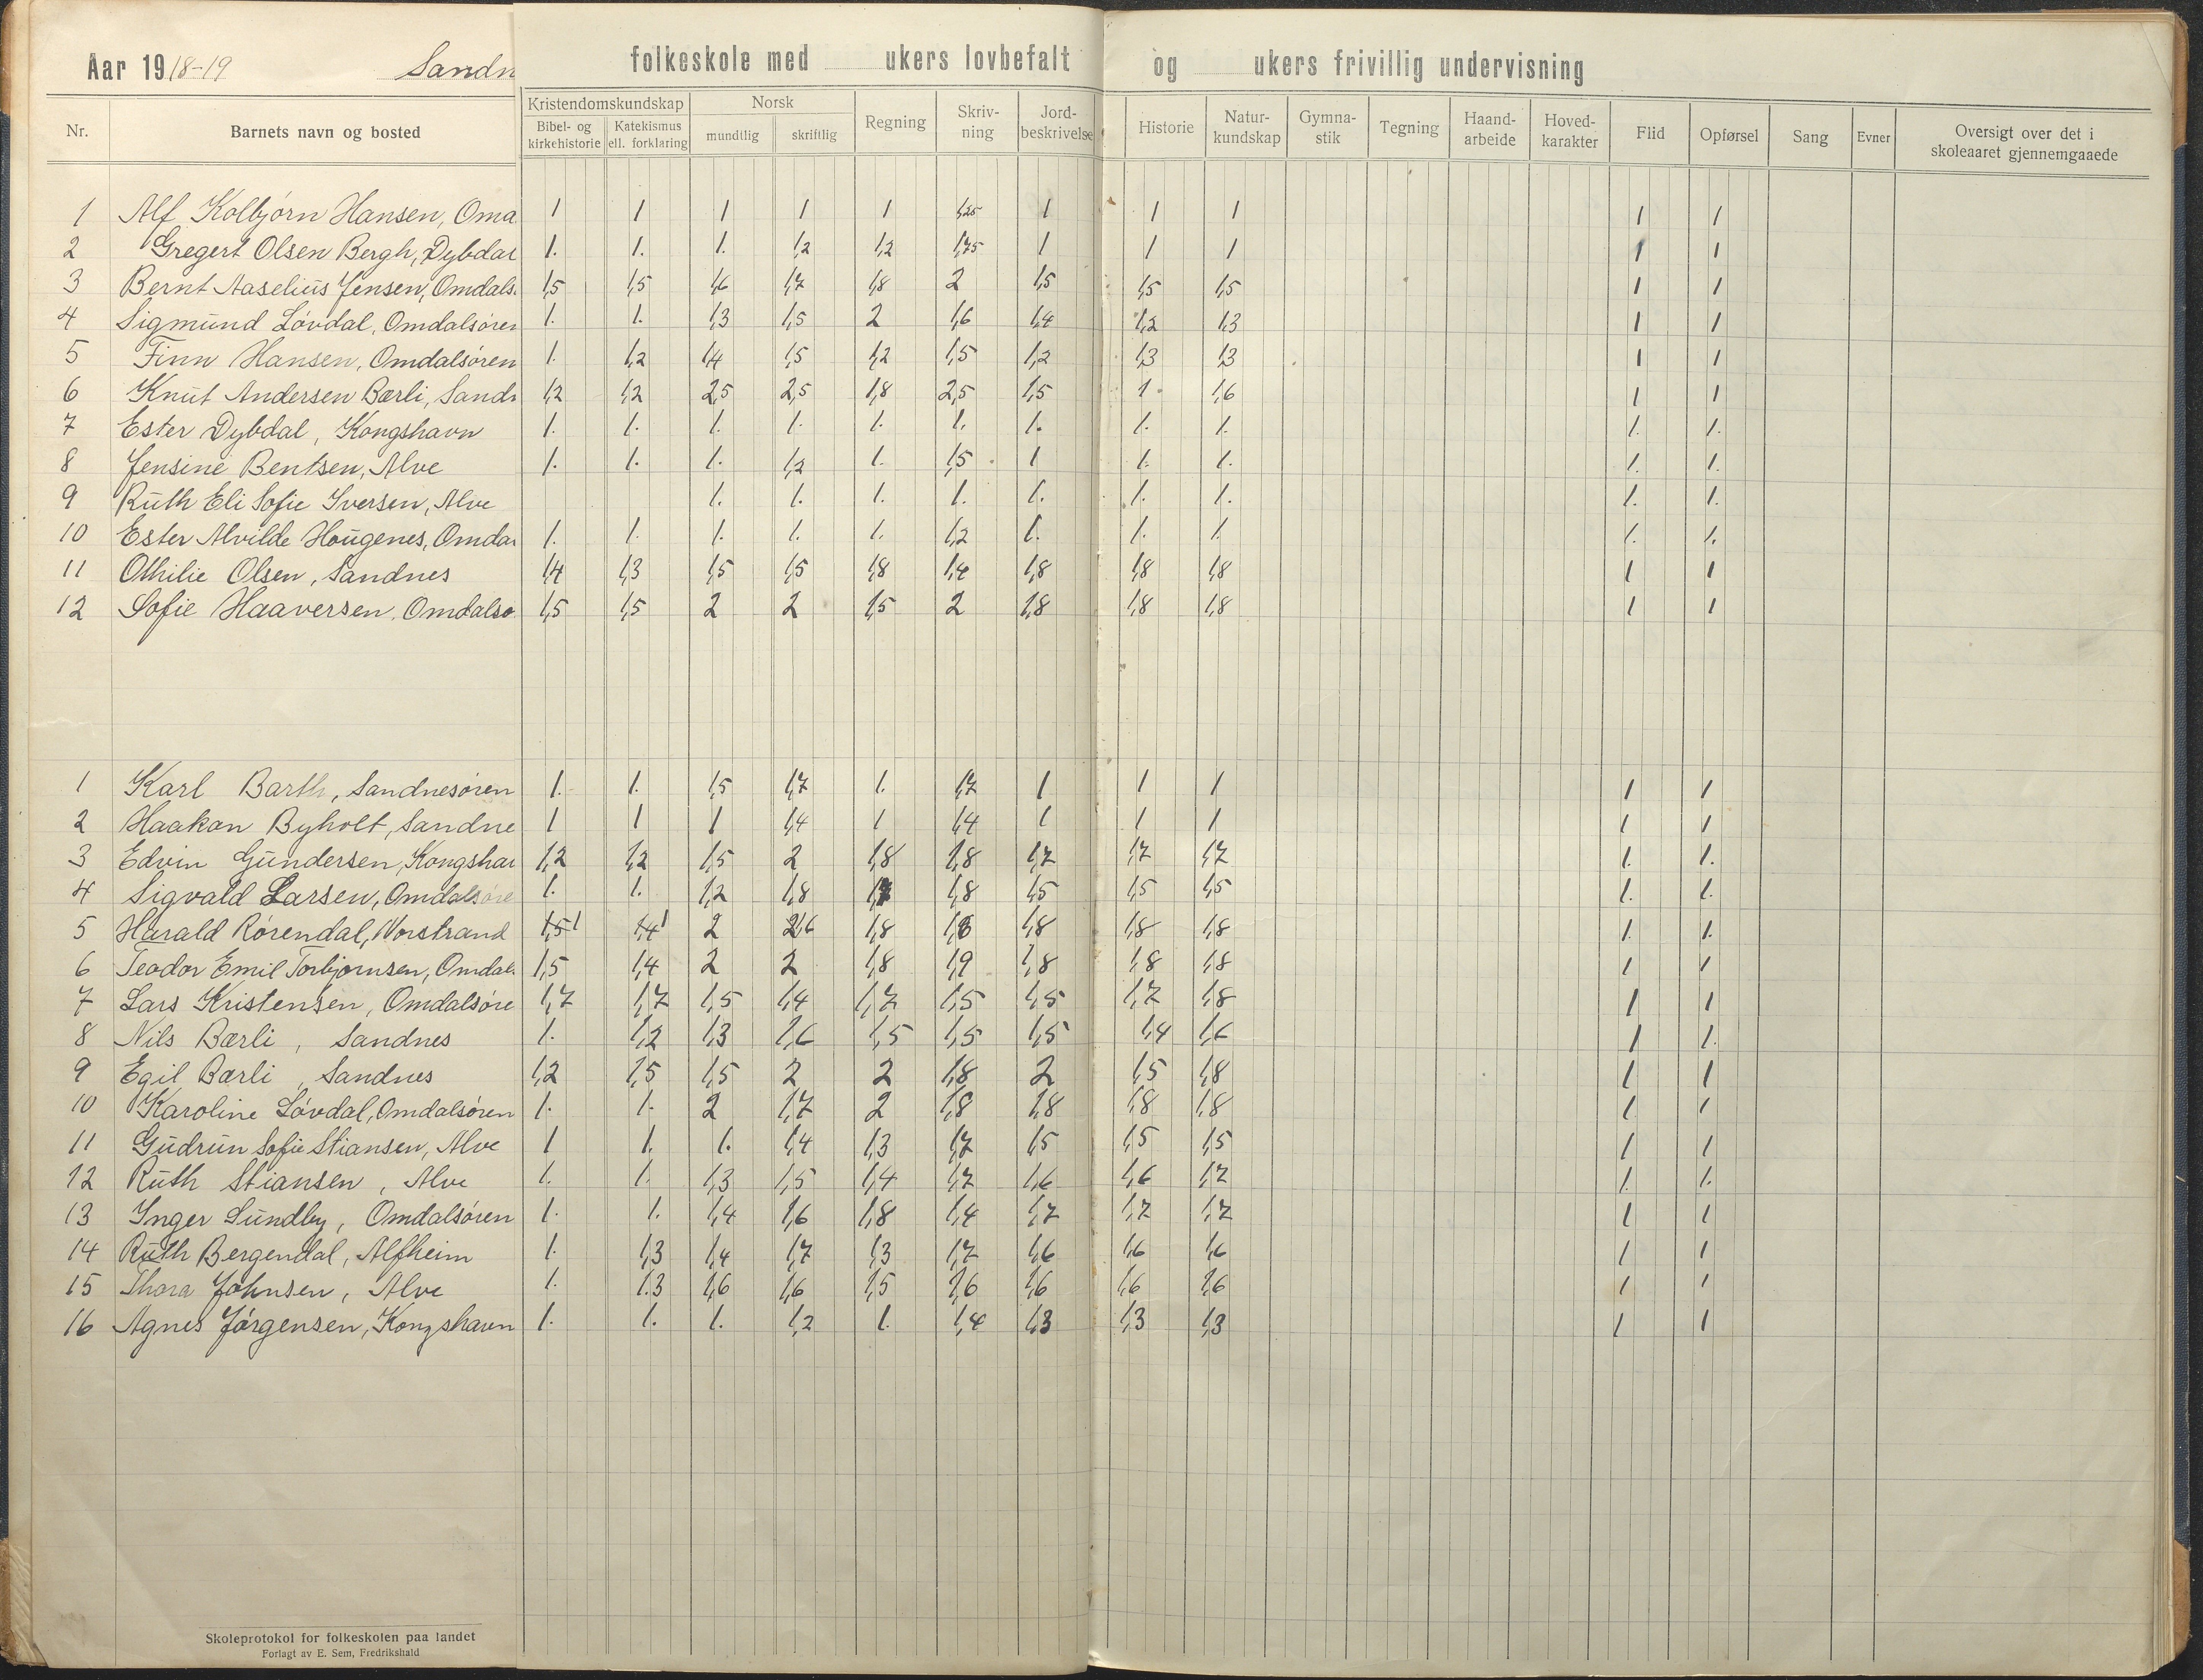 Aar 1918-19 Sandn folkeskole med ukers lovbefalt og ukers frivillig undervisning
Nr. Barnets navn og bosted Kristendomskundskap Bibel- og kirkehistorie Katekismus ell. forklaring Norsk mundtlig skriftlig Regning Skriv-ning Jord-beskrivelse Historie Natur-kundskap Gymna-stik Tegning Haand-arbeide Hoved-karakter Flid Opførsel Sang Evner Oversigt over det i skoleaaret gjennemgaaede
1 Alf Kolbjørn Hansen, Oma 1 1 1 1 1 1,25 1 1 1 1 1
2 Gregert Olsen Bergh, Dybdal 1. 1. 1. 1,2 1,2 1,75 1 1 1 1 1
3 Bernt Aaselius Jensen, Omdals 1,5 1,5 1,6 1,7 1,8 2 1,5 1,5 1,5 1 1
4 Sigmund Løvdal, Omdalsøren 1. 1. 1,3 1,5 2 1,6 1,4 1,2 1,3 1 1
5 Finn Hansen, Omdalsøren 1. 1,2 1,4 1,5 1,2 1,5 1,2 1,3 1,3 1 1
6 Knut Andersen Bærli, Sandn 1,2 1,2 2,5 2,5 1,8 2,5 1,5 1 1,6 1 1
7 Ester Dybdal, Kongshavn 1. 1. 1. 1. 1. 1. 1. 1. 1. 1. 1.
8 Jensine Bentsen, Alve 1. 1. 1. 1,2 1. 1,5 1 1. 1. 1. 1.
9 Ruth Eli Sofie Iversen, Alve 1. 1. 1. 1. 1. 1. 1. 1. 1.
10 Ester Alvilde Hougenes, Omdal 1. 1. 1. 1. 1. 1,2 1. 1. 1. 1. 1.
11 Othilie Olsen, Sandnes 1,4 1,3 1,5 1,5 1,8 1,4 1,8 1,8 1,8 1 1
12 Sofie Haaversen, Omdalsø 1,5 1,5 2 2 1,5 2 1,8 1,8 1,8 1 1
1 Karl Barth, Sandnesøren 1. 1. 1,5 1,7 1. 1,7 1 1 1 1 1
2 Haakon Byholt, Sandne 1 1 1 1,4 1 1,4 1 1 1 1 1
3 Edvin Gundersen, Kongshav 1,2 1,2 1,5 2 1,8 1,8 1,7 1,7 1,7 1. 1.
4 Sigvald Larsen, Omdalsøre 1. 1. 1,2 1,8 1,7 1,8 1,5 1,5 1,5 1. 1.
5 Harald Rørendal, Norstrand 1,5 1 1,4 1 2 2,6 1,8 1,8 1,8 1,8 1,8 1. 1.
6 Teodor Emil Torbjørnsen, Omdal 1,5 1,4 2 2 1,8 1,9 1,8 1,8 1,8 1 1
7 Lars Kristensen, Omdalsøre 1,7 1,7 1,5 1,4 1,7 1,5 1,5 1,7 1,8 1 1
8 Nils Bærli, Sandnes 1. 1,2 1,3 1,6 1,5 1,5 1,5 1,4 1,6 1 1.
9 Egil Bærli, Sandnes 1,2 1,5 1,5 2 2 1,8 2 1,5 1,8 1 1
10 Karoline Løvdal, Omdalsøren 1. 1. 2 1,7 2 1,8 1,8 1,8 1,8 1 1
11 Gudrun Sofie Stiansen, Alve 1 1. 1. 1,4 1,3 1,7 1,5 1,5 1,5 1 1
12 Ruth Stiansen, Alve 1. 1. 1,3 1,5 1,4 1,7 1,6 1,6 1,7 1. 1.
13 Inger Sundby, Omdalsøren 1. 1. 1,4 1,6 1,8 1,4 1,7 1,7 1,7 1 1
14 Ruth Bergendal, Alfheim 1. 1,3 1,4 1,7 1,3 1,7 1,6 1,6 1,6 1 1
15 Thora Johnsen, Alve 1. 1.3 1,6 1,6 1,5 1,6 1,6 1,6 1,6 1 1
16 Agnes Jørgensen, Kongshavn 1. 1. 1. 1,2 1. 1,4 1,3 1,3 1,3 1 1
Skoleprotokol for folkeskolen paa landet
Forlagt av E. Sem, Fredrikshald